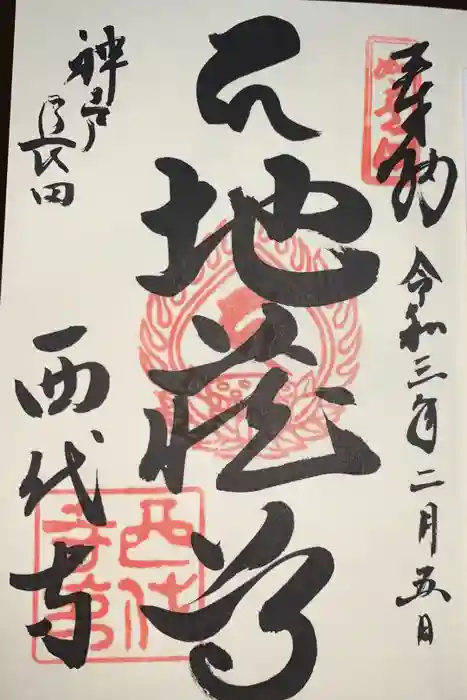 奉納
令和三年二月五日
石地蔵尊
神戸
長田
西代寺
西代